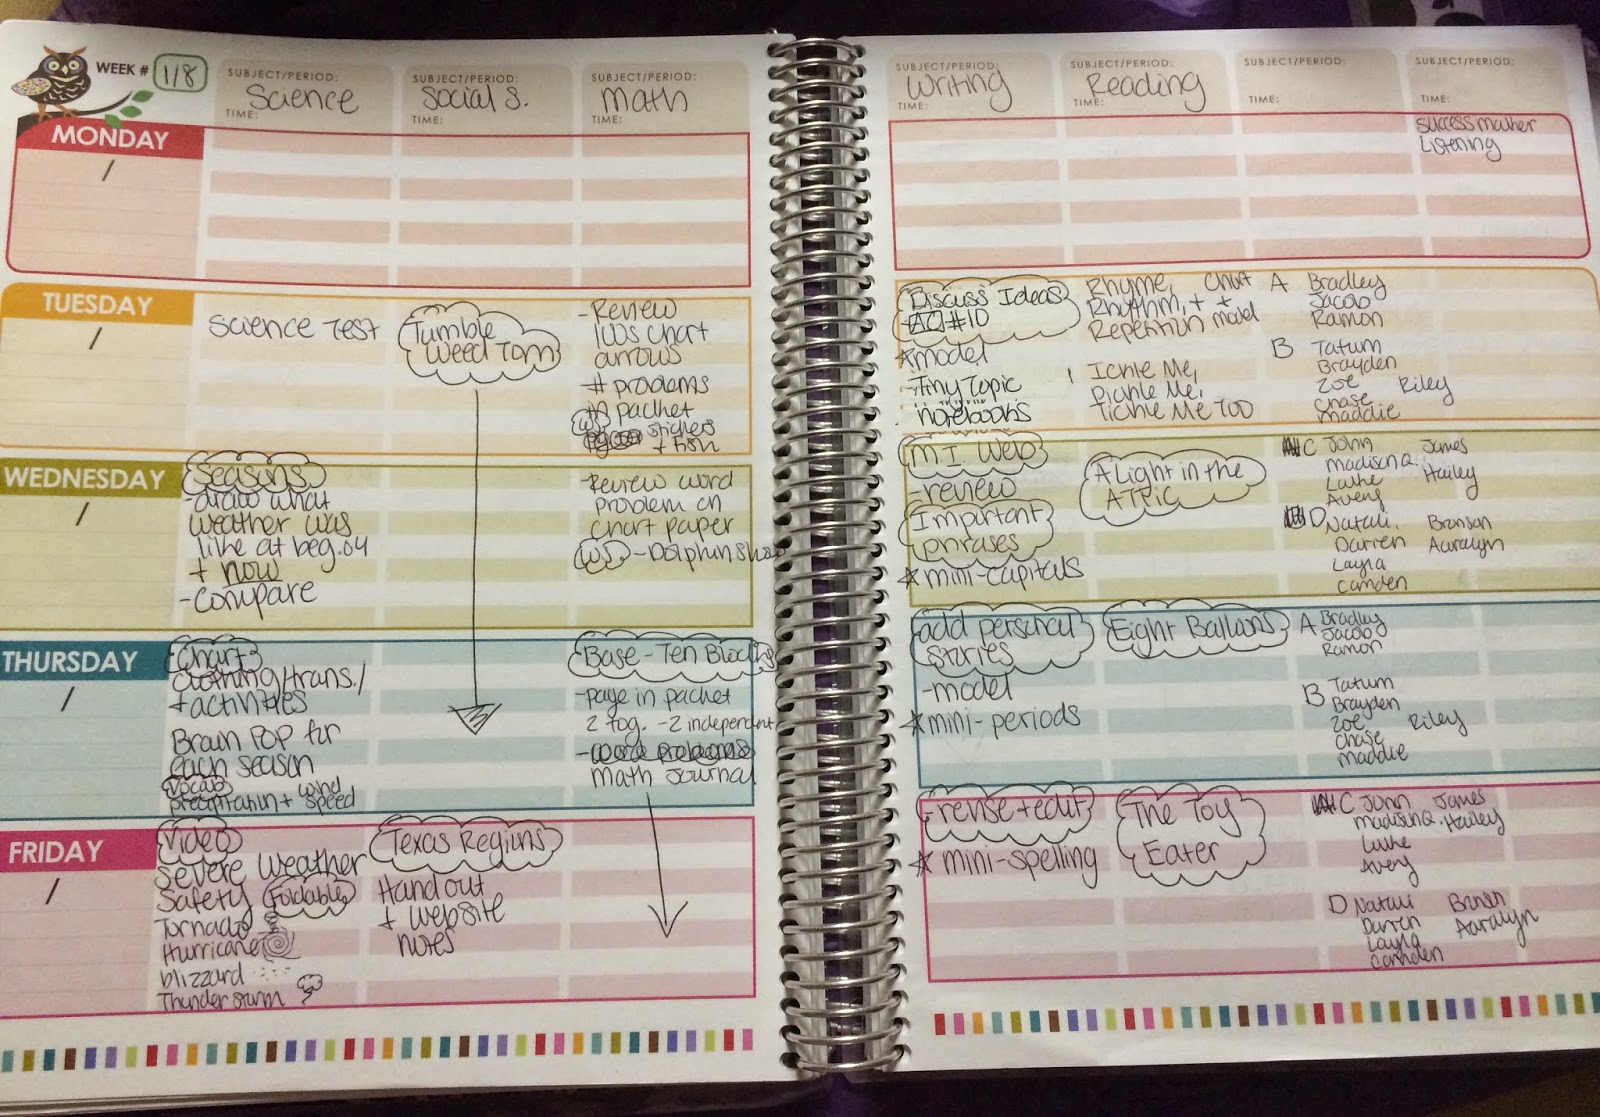 WEEK # 1/8
SUBJECT/PERIOD:
Science
TIME:
SUBJECT/PERIOD:
Social S.
TIME:
SUBJECT/PERIOD:
Math
TIME:
MONDAY
/
TUESDAY
/
Science Test
Tumble
Weed Tom
- Review
100s chart
arrows
# problems
in packet
WS stickers
+ Fish
WEDNESDAY
/
Seasons
- draw what
weather was
like at beg. of
+ now
- Compare
- Review word
problem on
chart paper
WS - Dolphin Show
THURSDAY
/
Chart
clothing/trans./
+ activities
Brain Pop for
each season
Vocab wind
precipitation + speed
Base-Ten Blocks
- page in packet
2 tog. - 2 independent
- word problems
math journal
FRIDAY
/
Video
Severe Weather
Safety Foldable
Tornado
Hurricane
blizzard
Thunderstorm
Texas Regions
Handout
+ website
notes
SUBJECT/PERIOD:
Writing
TIME:
SUBJECT/PERIOD:
Reading
TIME:
SUBJECT/PERIOD:
TIME:
SUBJECT/PERIOD:
TIME:
Listening
Discuss Ideas
#10
*model
- Tiny Topic
notebooks
Rhyme, Chart
Rhythm, + +
Repetition model
Ickle Me,
Pickle Me,
Tickle Me Too
A Bradley
Jacob
Ramon
B Tatum
Brayden
Zoe Riley
Chase
Maddie
M.I. Web
- review
Important
phrases
* mini-capitals
A Light in the
ATTIC
C John James
Madison Q. Hailey
Luke
Avery
D Natali. Bronson
Darren Aaralyn
Layla
Camden
add personal
stories
- model
* mini-periods
Eight Balloons
A Bradley
Jacob
Ramon
B Tatum
Brayden
Zoe Riley
Chase
Maddie
revise + edit
* mini-spelling
The Toy
Eater
C John James
Madison Q. Hailey
Luke
Avery
D Natali Bronson
Darren Aaralyn
Layla
Camden